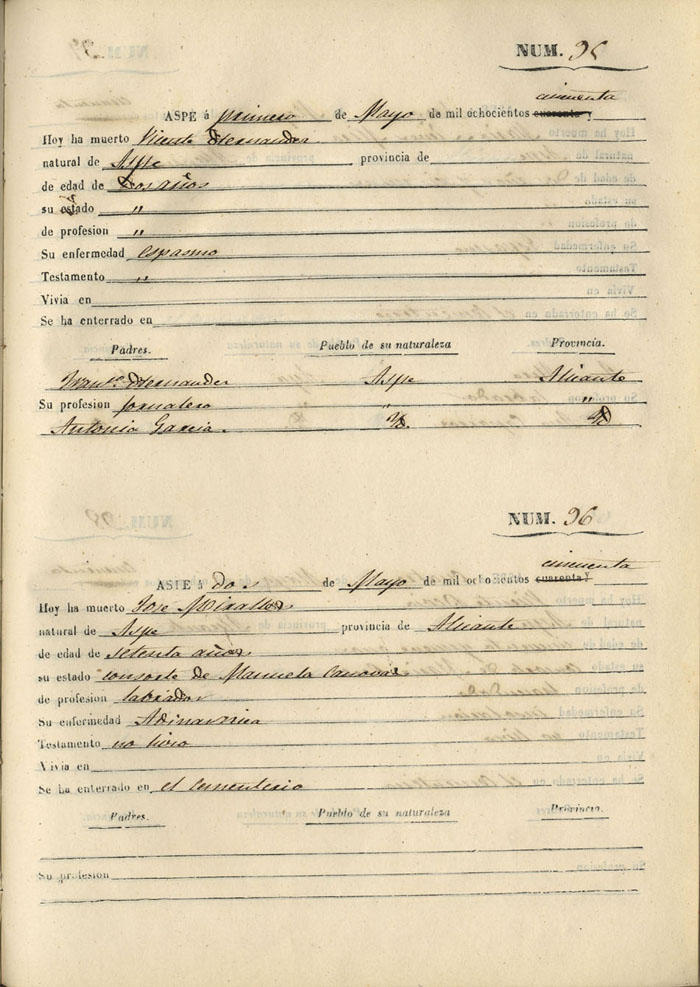 NUM. 95
cincuenta
ASPE á primero de Mayo de mil ochocientos cuarenta y
Hoy ha muerto Vicente Hernandez
natural de Aspe provincia de
de edad de Dos años
su estado "
de profesion "
Su enfermedad espasmo
Testamento "
Vivia en
Se ha enterrado en
Padres. Pueblo de su naturaleza Provincia.
Franco. Hernandez Aspe Alicante
Su profesion jornalero " "
Antonia Garcia. Yd. Yd.
NUM. 96
cincuenta
ASPE á dos de Mayo de mil ochocientos cuarenta y
Hoy ha muerto Jose Miralles
natural de Aspe provincia de Alicante
de edad de setenta años
su estado consorte de Manuela Canovas
de profesion labrador
Su enfermedad Adinamica
Testamento no hizo
Vivia en
Se ha enterrado en el Cementerio
Padres. Pueblo de su naturaleza Provincia.
Su profesion